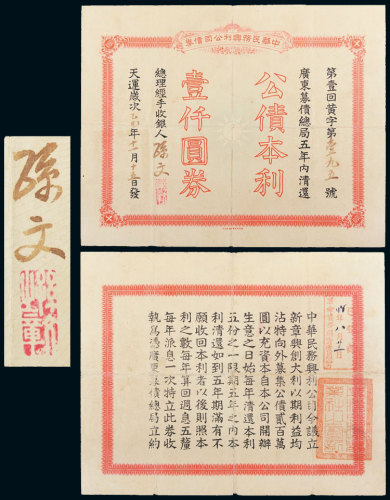 中華民務興利公司債券
第壹回黃字第壹九五號
廣東募債總局五年內清還
公債本利
壹仟圓券
總理經手收銀人 孫文
天運歲次乙巳年十一月十五日發
孫文
中華民務興利公司今議立
新章興創大利以期利益均
沾特向外募集公債貳百萬
圓以充資本自本公司開辦
生意之日始每年清還本利
五份之一限期五年之內本
利清還如到五年期滿有不
願收回本利者以後則照本
利之數每年算回週息五釐
每年派息一次特立此券收
執為憑廣東募債總局立約